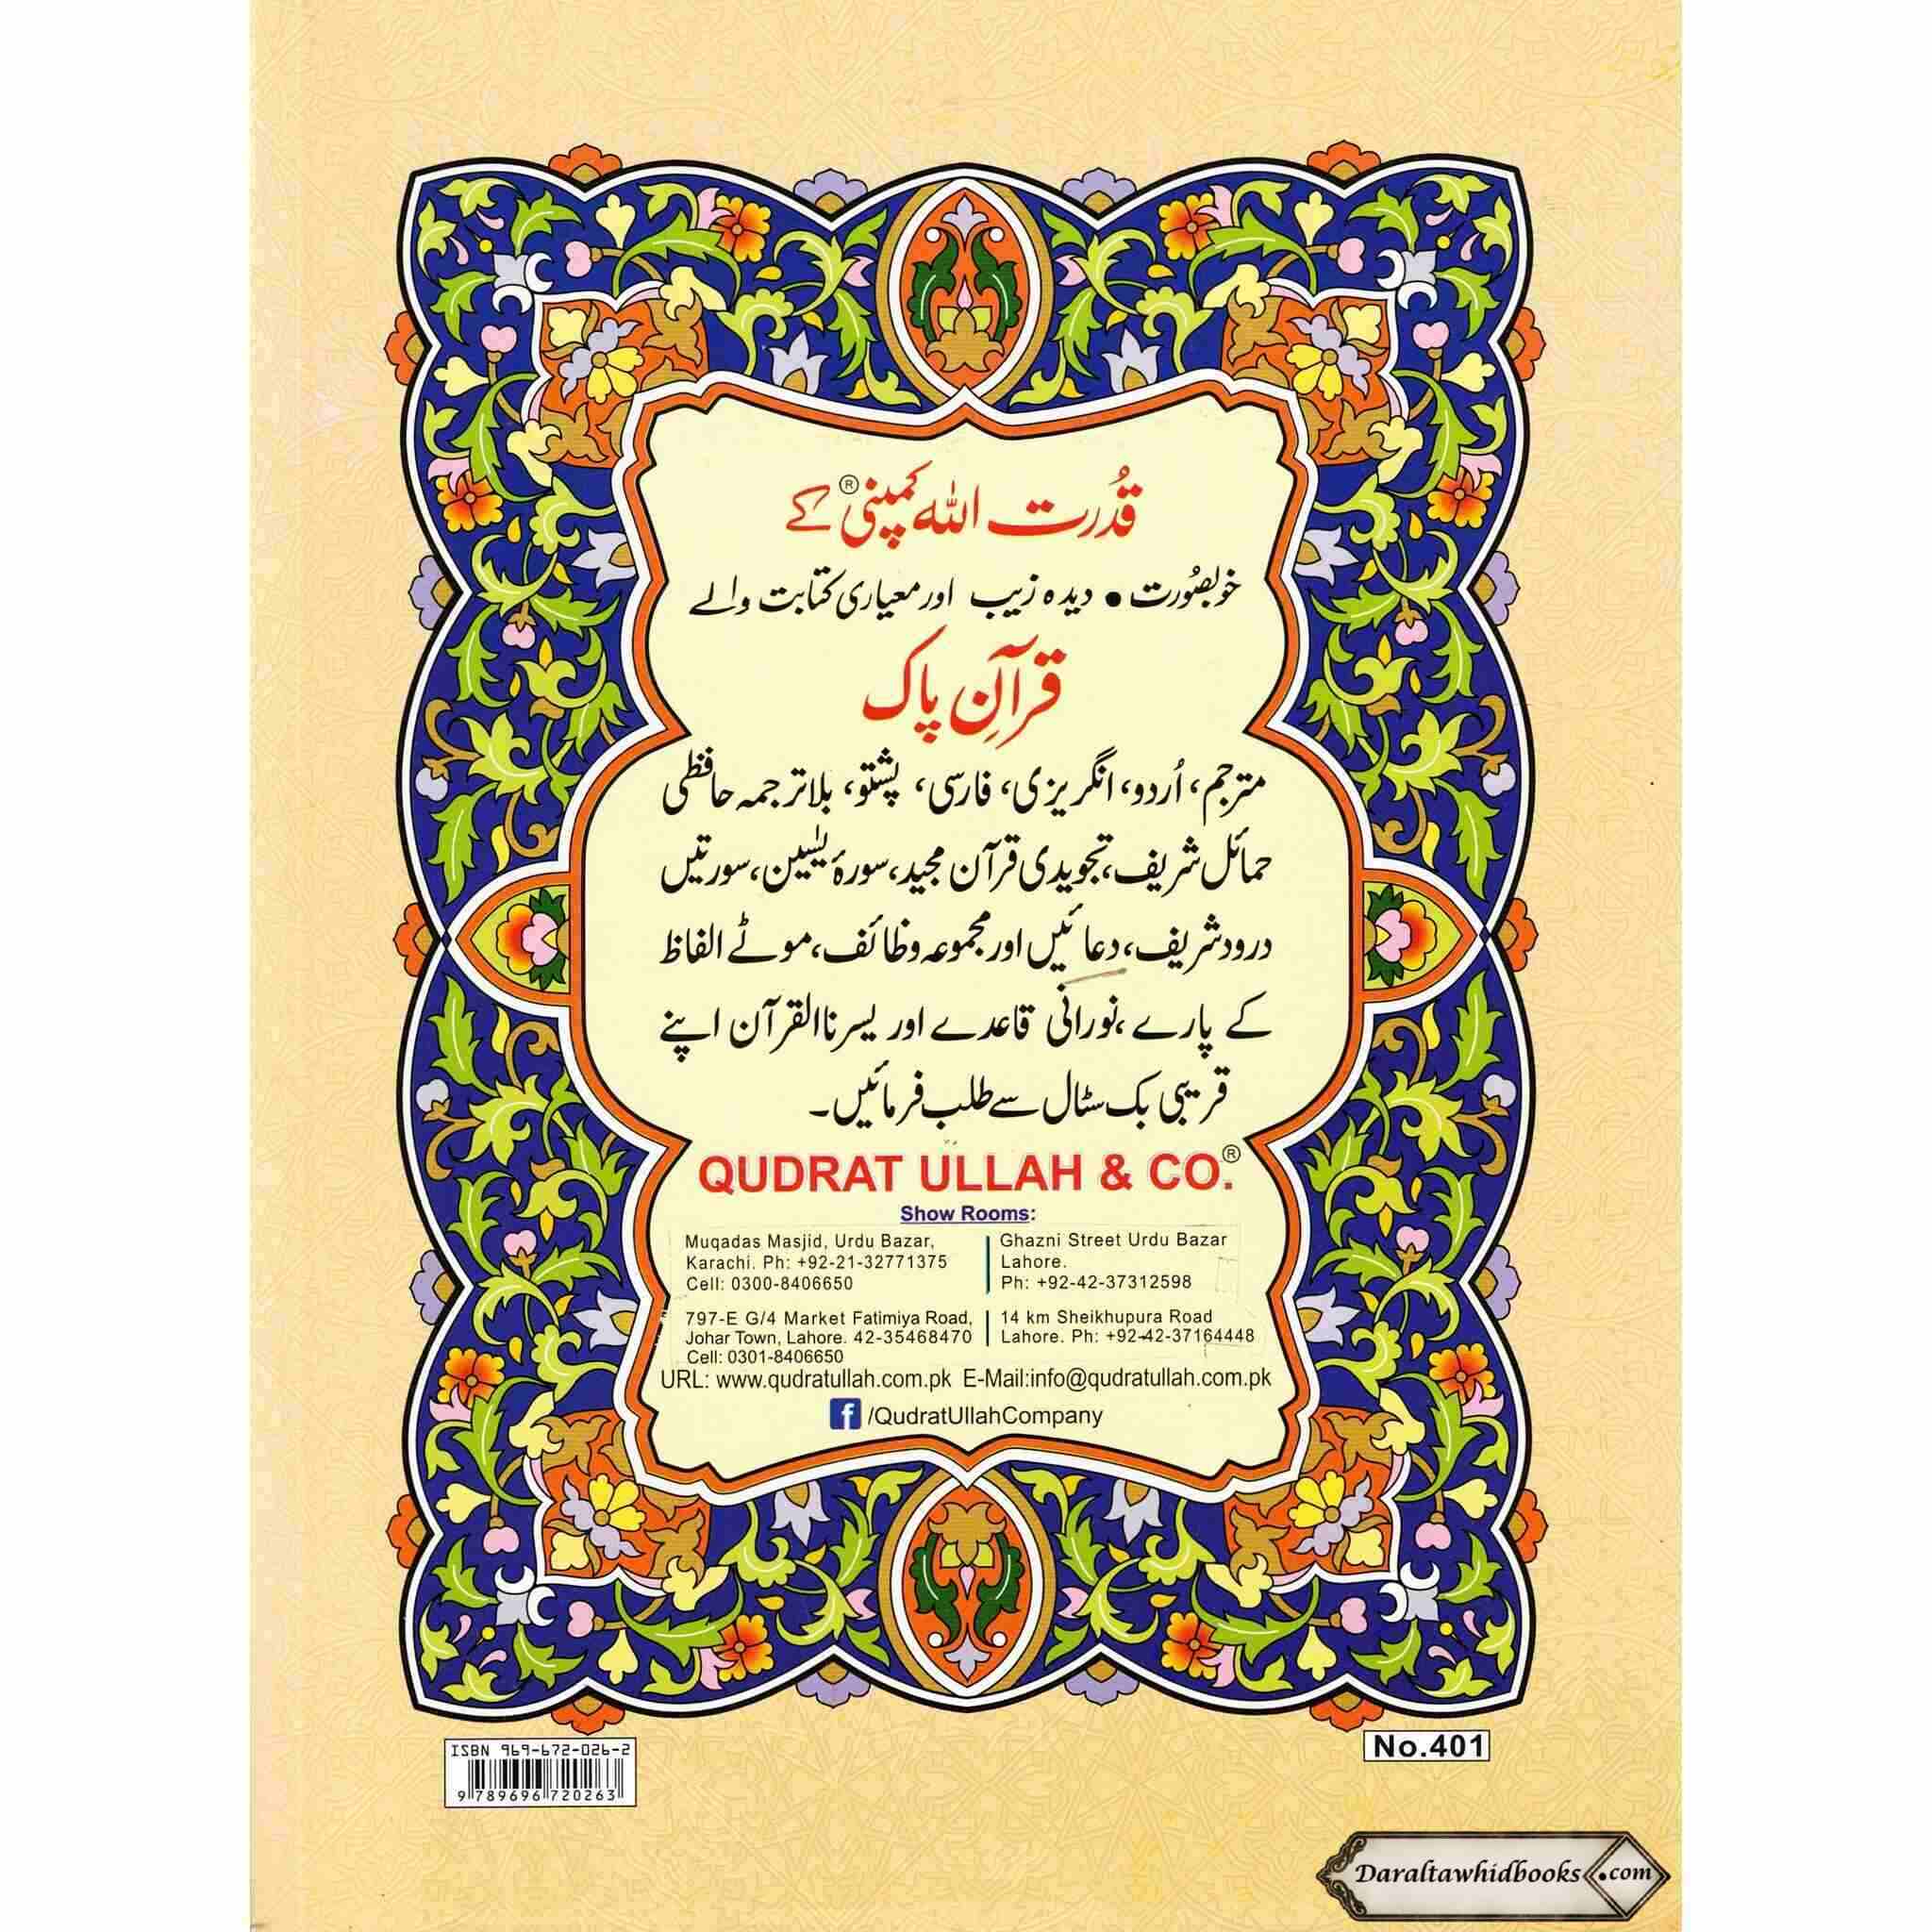 قُدرت اللہ کمپنی® کے
خوبصُورت • دیدہ زیب اور معیاری کتابت والے
قرآنِ پاک
مترجم، اُردو، انگریزی، فارسی، پشتو، بلا ترجمہ حافظی
حمائل شریف، تجویدی قرآن مجید، سورۂ یٰسین، سورتیں
درود شریف، دعائیں اور مجموعہ وظائف، موٹے الفاظ
کے پارے، نورانی قاعدے اور یسرنا القرآن اپنے
قریبی بک سٹال سے طلب فرمائیں۔
QUDRAT ULLAH & CO.®
Show Rooms:
Muqadas Masjid, Urdu Bazar,
Karachi. Ph: +92-21-32771375
Cell: 0300-8406650
Ghazni Street Urdu Bazar
Lahore.
Ph: +92-42-37312598
797-E G/4 Market Fatimiya Road,
Johar Town, Lahore. 42-35468470
Cell: 0301-8406650
14 km Sheikhupura Road
Lahore. Ph: +92-42-37164448
URL: www.qudratullah.com.pk E-Mail:info@qudratullah.com.pk
f /QudratUllahCompany
ISBN 969-672-026-2
9 789696 720263
No.401
Daraltawhidbooks.com